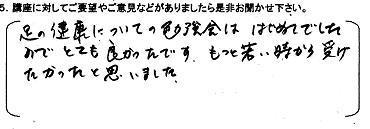 5. 講座に対してご要望やご意見などがありましたら是非お聞かせ下さい。
足の健康についての勉強会は はじめてでした
ので とても良かったです。もっと若い時から受け
たかったと思いました